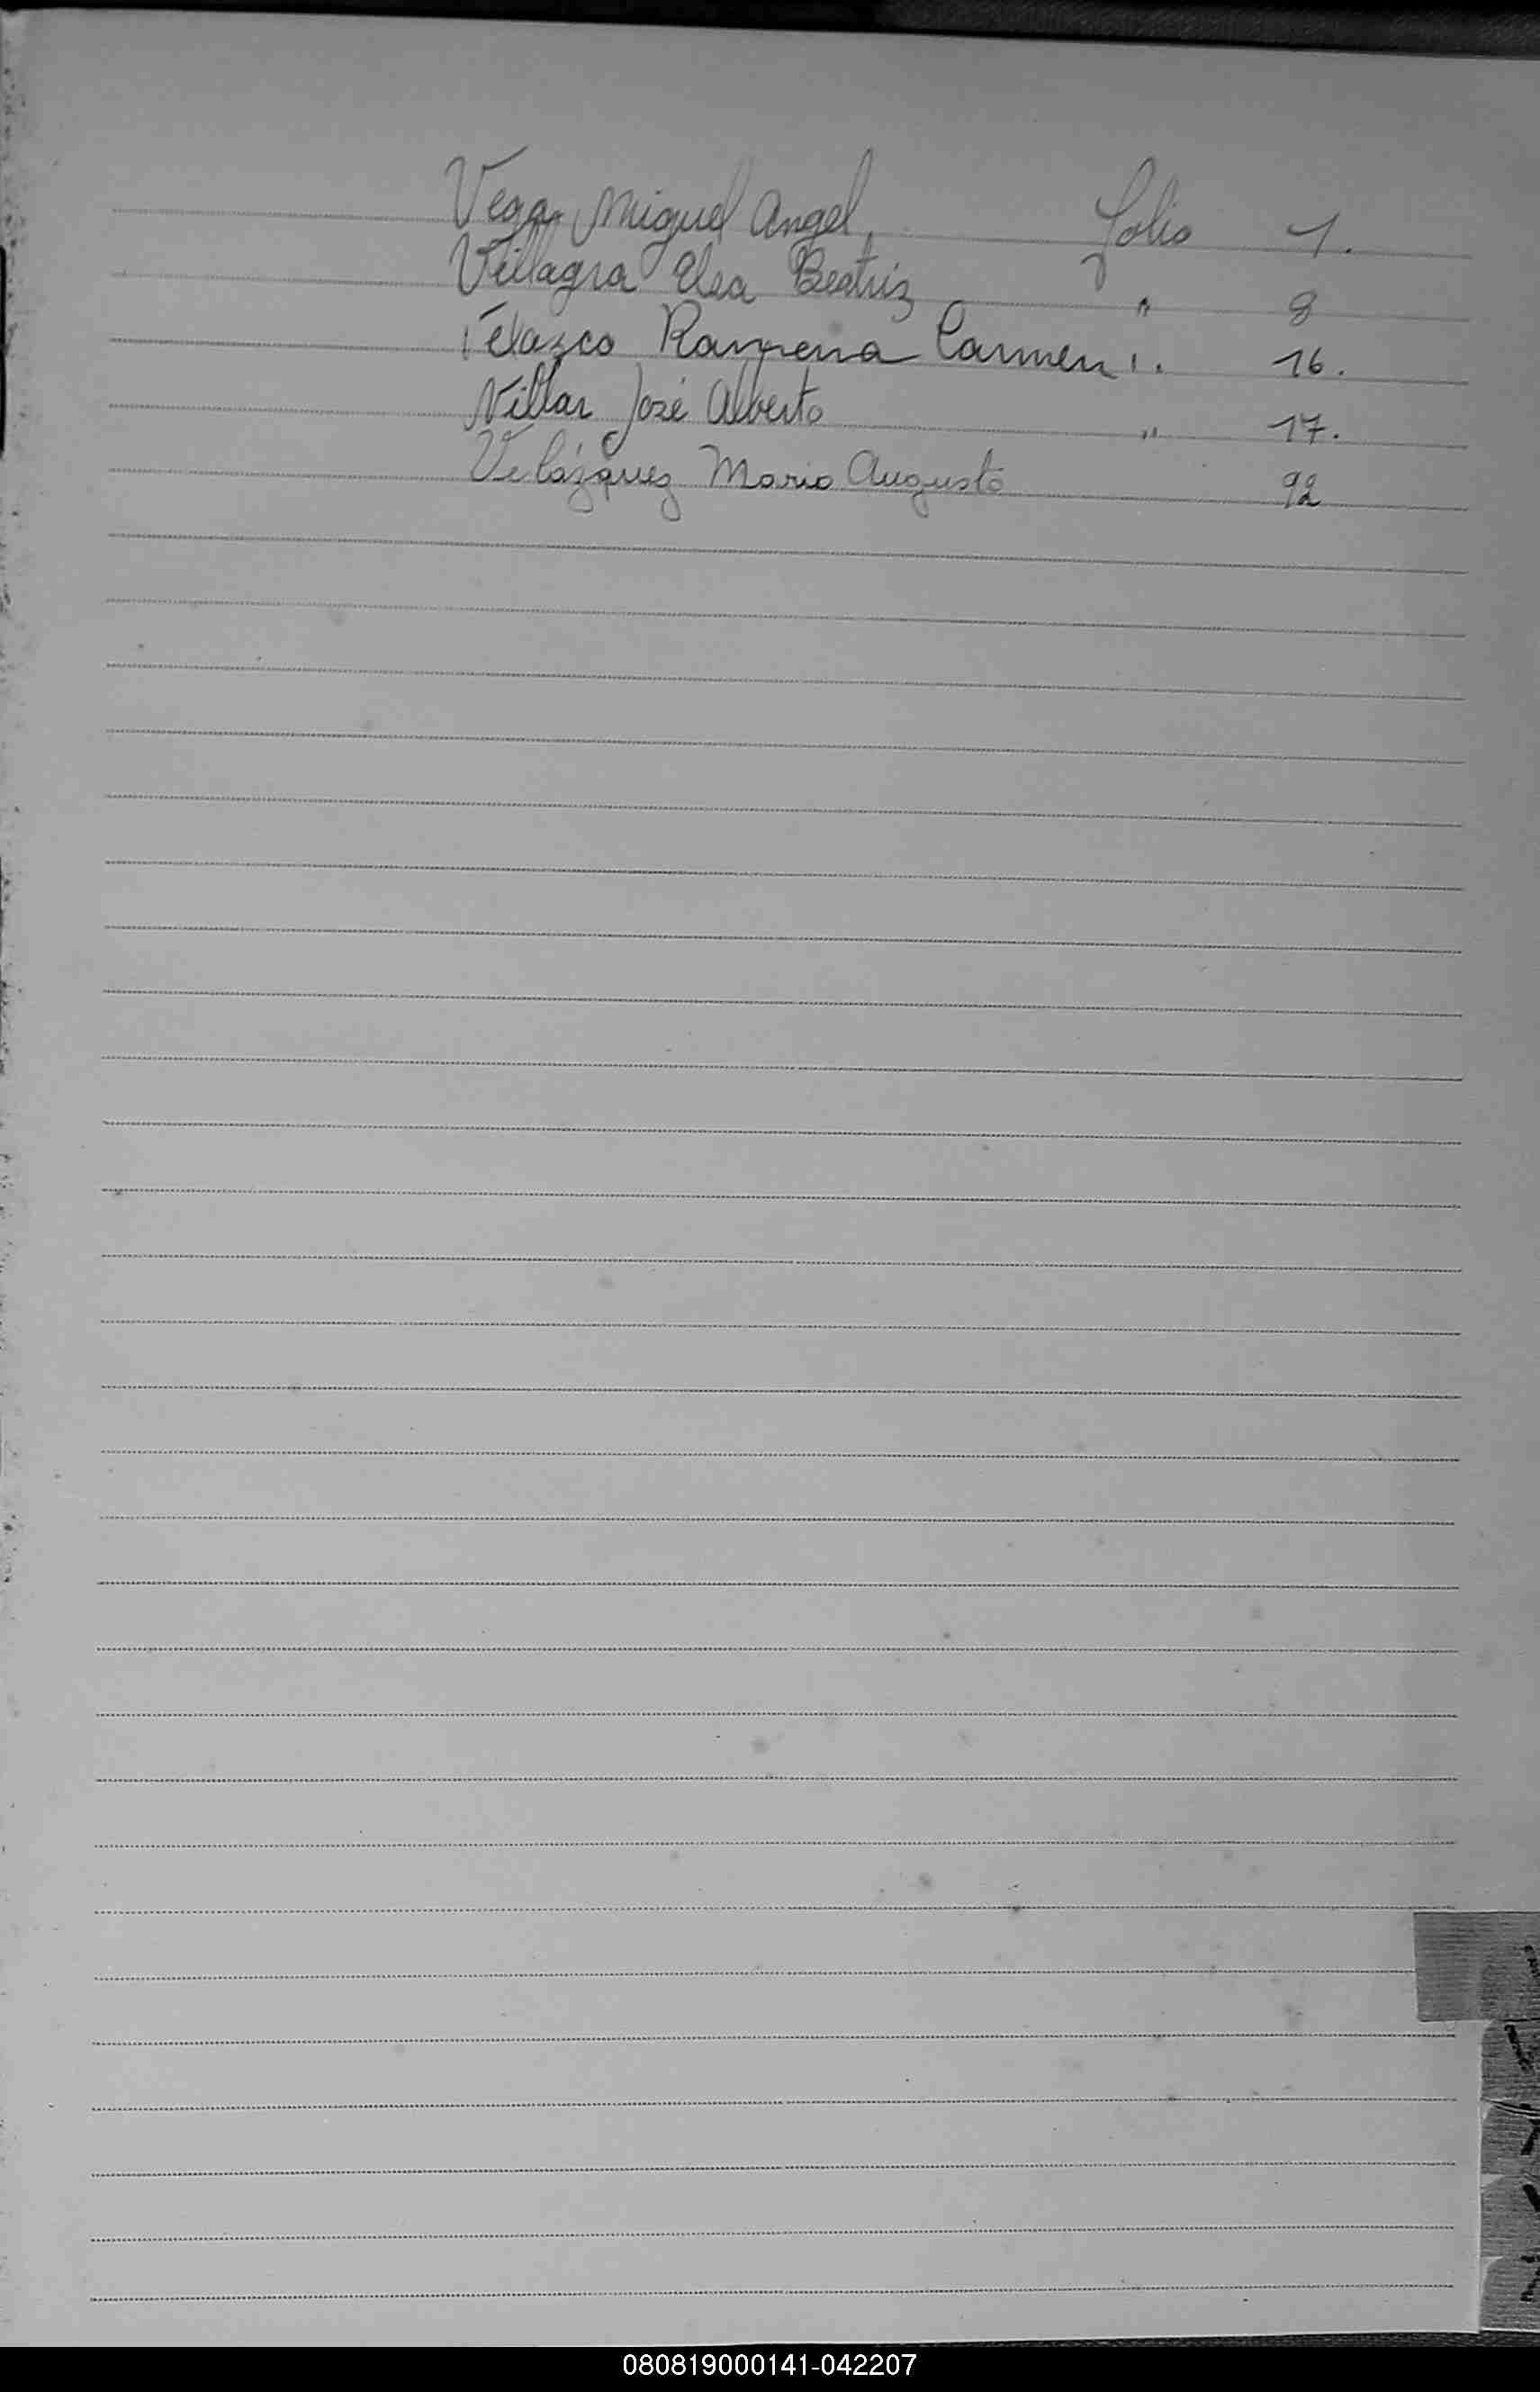 Vega Miguel Angel, Folio 1.
Villagra Elsa Beatriz " 8
Velazco Carmen ". 16.
Villar José Alberto " 17.
Velázquez Mario Augusto 92
080819000141-042207